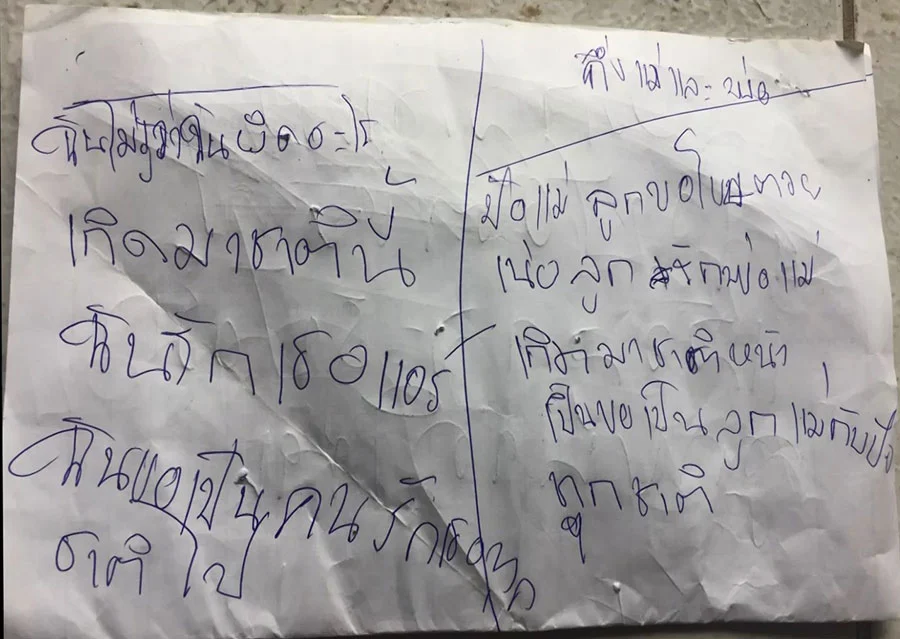 ฉันไม่รู้ว่าฉัน ผิดอะไร
เกิดมาชาตินี้
ฉันรักเธอแอร์
ฉันขอเป็นคนรักเธอทุก
ชาติ ไป
ถึงแม่และ พ่อ
ป๋อแม่ ลูกขอโทษตวย
เน่อ ลูก รักพ่อแม่
เกิดมาชาติหน้า
เป็นขอเป็น ลูก แม่กับป๋อ
ทุกชาติ